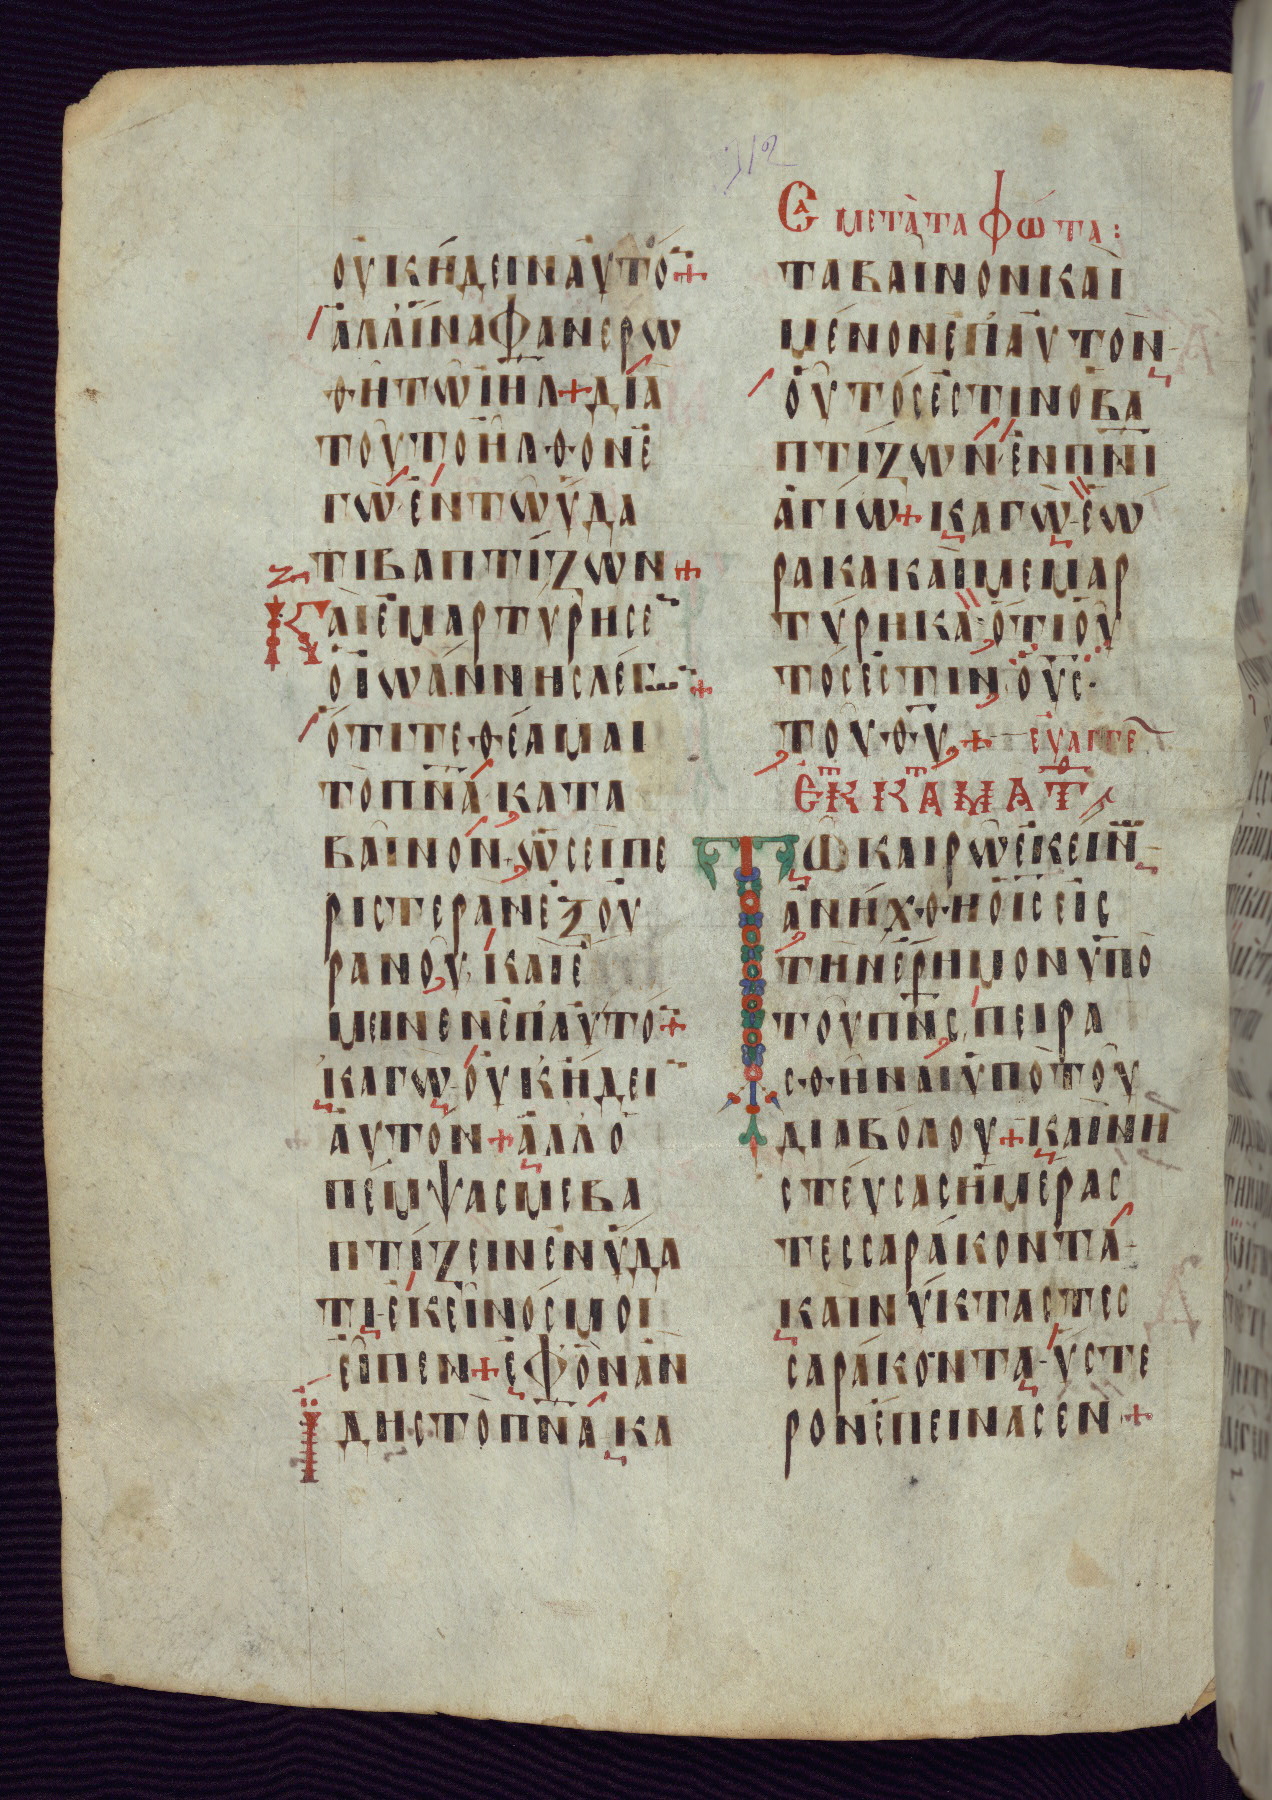 312
Σα ΜΕΤᾺ ΤΑ ΦΩ͂ΤΑ:
ΟΥΚΗΔΕΙΝΑΥΤΟ̅ +
ΑΛΛΙΝΑΦΑΝΕΡΩ
ΘΗΤΩΙΗΛ + ΔΙΑ
ΤΟΥΤΟΗΛΘΟΝΕ
ΓΩΕΝΤΩΥΔΑ
ΤΙΒΑΠΤΙΖΩΝ +
ΚΑΙΕΜΑΡΤΥΡΗΣΕ̅
ΟΙΩΑΝΝΗΣΛΕΓ +
ΟΤΙΤΕΘΕΑΜΑΙ
ΤΟΠΝ̅ΑΚΑΤΑ
ΒΑΙΝΟΝΩΣΕΙΠΕ
ΡΙΣΤΕΡΑΝΕΞΟΥ
ΡΑΝΟΥΚΑΙΕ
ΜΕΙΝΕΝΕΠΑΥΤΟ̅ +
ΚΑΓΩΟΥΚΗΔΕΙ̅
ΑΥΤΟΝ + ΑΛΛΟ
ΠΕΜΨΑΣΜΕΒΑ
ΠΤΙΖΕΙΝΕΝΥΔΑ
ΤΙΕΚΕΙΝΟΣΜΟΙ
ΕΙΠΕΝ + ΕΦΟΝΑΝ
ΙΔΗΣΤΟΠΝ̅ΑΚΑ
ΤΑΒΑΙΝΟΝΚΑΙ
ΜΕΝΟΝΕΠΑΥΤΟΝ
ΟΥΤΟΣΕΣΤΙΝΟΒΑ
ΠΤΙΖΩΝΕΝΠΝ̅Ι
ΑΓΙΩ + ΚΑΓΩΕΩ
ΡΑΚΑΚΑΙΜΕΜΑΡ
ΤΥΡΗΚΑΟΤΙΟΥ
ΤΟΣΕΣΤΙΝΟΥ̅Σ
ΤΟΥΘ̅Υ + ΕΥΑΓΓΕ
ΕΚ Κ ΑΜΑΤΘ
ΤΩΚΑΙΡΩΕΚΕΙΝ
ΑΝΗΧΘΗΟΙ̅ΣΕΙΣ
ΤΗΝΕΡΗΜΟΝΥΠΟ
ΤΟΥΠΝ̅ΣΠΕΙΡΑ
ΣΘΗΝΑΙΥΠΟΤΟΥ
ΔΙΑΒΟΛΟΥ + ΚΑΙΝΗ
ΣΤΕΥΣΑΣΗΜΕΡΑΣ
ΤΕΣΣΑΡΑΚΟΝΤΑ
ΚΑΙΝΥΚΤΑΣΤΕΣ
ΣΑΡΑΚΟΝΤΑΥΣΤΕ
ΡΟΝΕΠΕΙΝΑΣΕΝ +